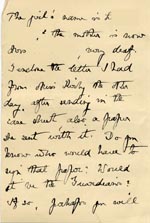 The girl's name is L
" the mother is now
Mrs , very deaf.
I enclose the letter I had
from Miss Kirby the other
day, after sending in the
case sheet also a paper
she sent with it. Do you
know who would have to
sign that paper? Would
it be the Guardians?
If so, perhaps you will